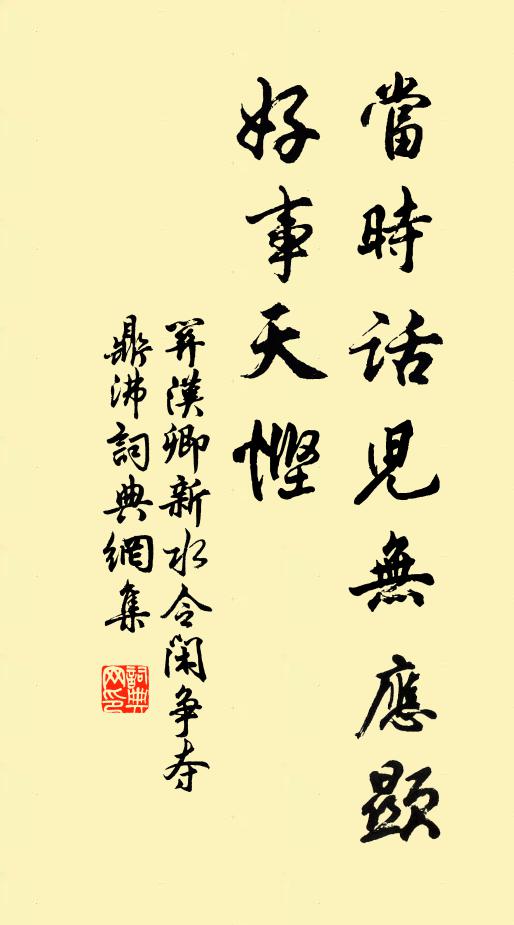 當時話兒無應顯
好事天慳
關漢卿新水令閑争夺
鼎沸詞典網集
詞典
网印